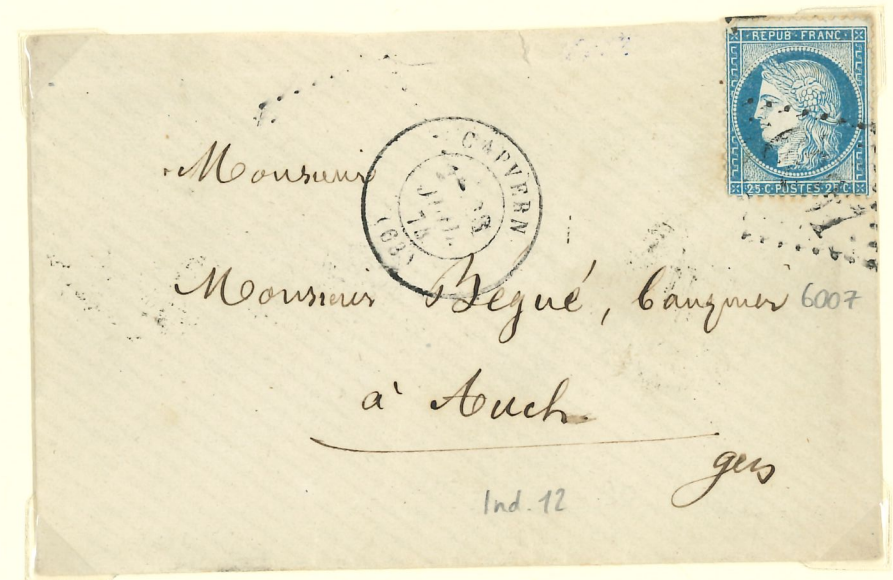 REPUB · FRANC ·
25 C · POSTES · 25 C
CAPVERN
JUIL
(68)
Monsieur
Monsieur Begué, banquier
6007
à Auch
gers
Ind. 12